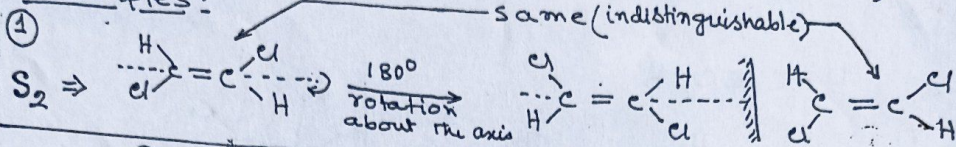 same (indistinguishable)
①
S₂ ⇒ H Cl C = C Cl H 180° rotation about the axis Cl H C = C H Cl H Cl C = C Cl H